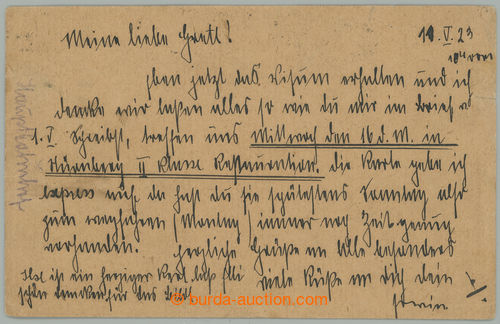 Meine liebe Gretl! 10. V. 23
10 h vorm
Eben jetzt das Visum erhalten und ich
denke wir laßen alles so wie du mir im Brief v
1. V. schreibst, treffen uns Mittwoch den 16 d. M. in
Nürnberg II Klasse Restauration. die Karte gebe ich
express auf, da hast du sie spätestens Sonntag also
zum wegfahren (Montag) immer noch Zeit genug
vorhanden. herzliche Grüße an Alle besonders
viele Küße an dich dein
Erwin.
ist ein herziger Kerl, laß
schön danken für das Bild
burda-auction.com